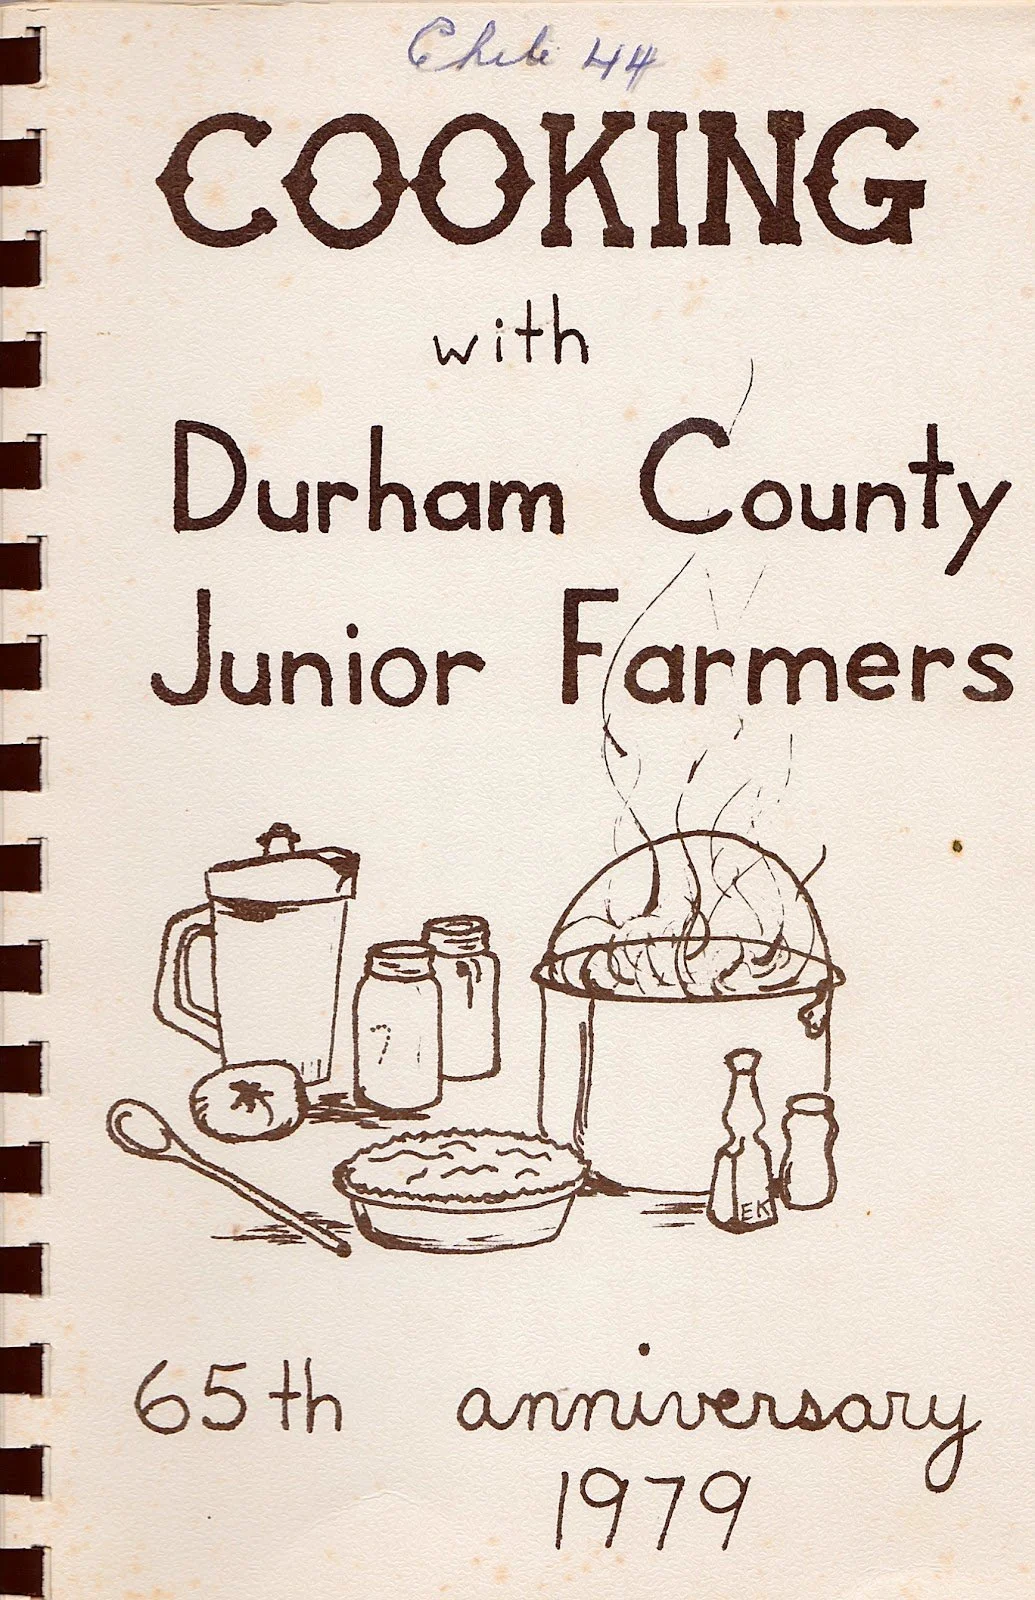 Chili 44
COOKING
with
Durham County
Junior Farmers
EK
65th anniversary
1979